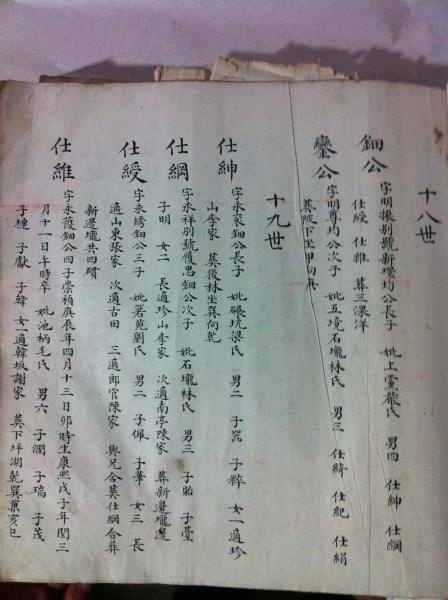 十八世
鈿公 字明振別號新環均公長子 妣上黨嚴氏 男四 仕紳 仕綱
仕綬 仕維 葬三溪洋
鑾公 字明尊均公次子 妣五境石壠林氏 男三 仕綺 仕紀 仕絹
葬坡下坐甲向庚
十九世
仕紳 字永裒鈿公長子 妣碾坑梁氏 男二 子冕 子粹 女一適珍
山李家 葬後林坐巽向乾
仕綱 字永祥別號履忠鈿公次子 妣石壠林氏 男三 子胎 子臺
子明 女二 長適珍山李家 次適南亭陳家 葬新邊壠邊
仕綬 字永綉鈿公三子 妣若苑劉氏 男二 子佩 子華 女三 長
適山東張家 次適古田 三適郎官陳家 與兄合葬仕綱合葬
新邊壠共四壙
仕維 字永護鈿公四子崇禎庚辰年四月十三日卯時生康熙戊子年閏三
月十一日午時卒 妣池柄毛氏 男六 子潤 子瑞 子茂
子璉 子獻 子韓 女一適韓坂謝家 葬下坪湖乾巽兼亥巳